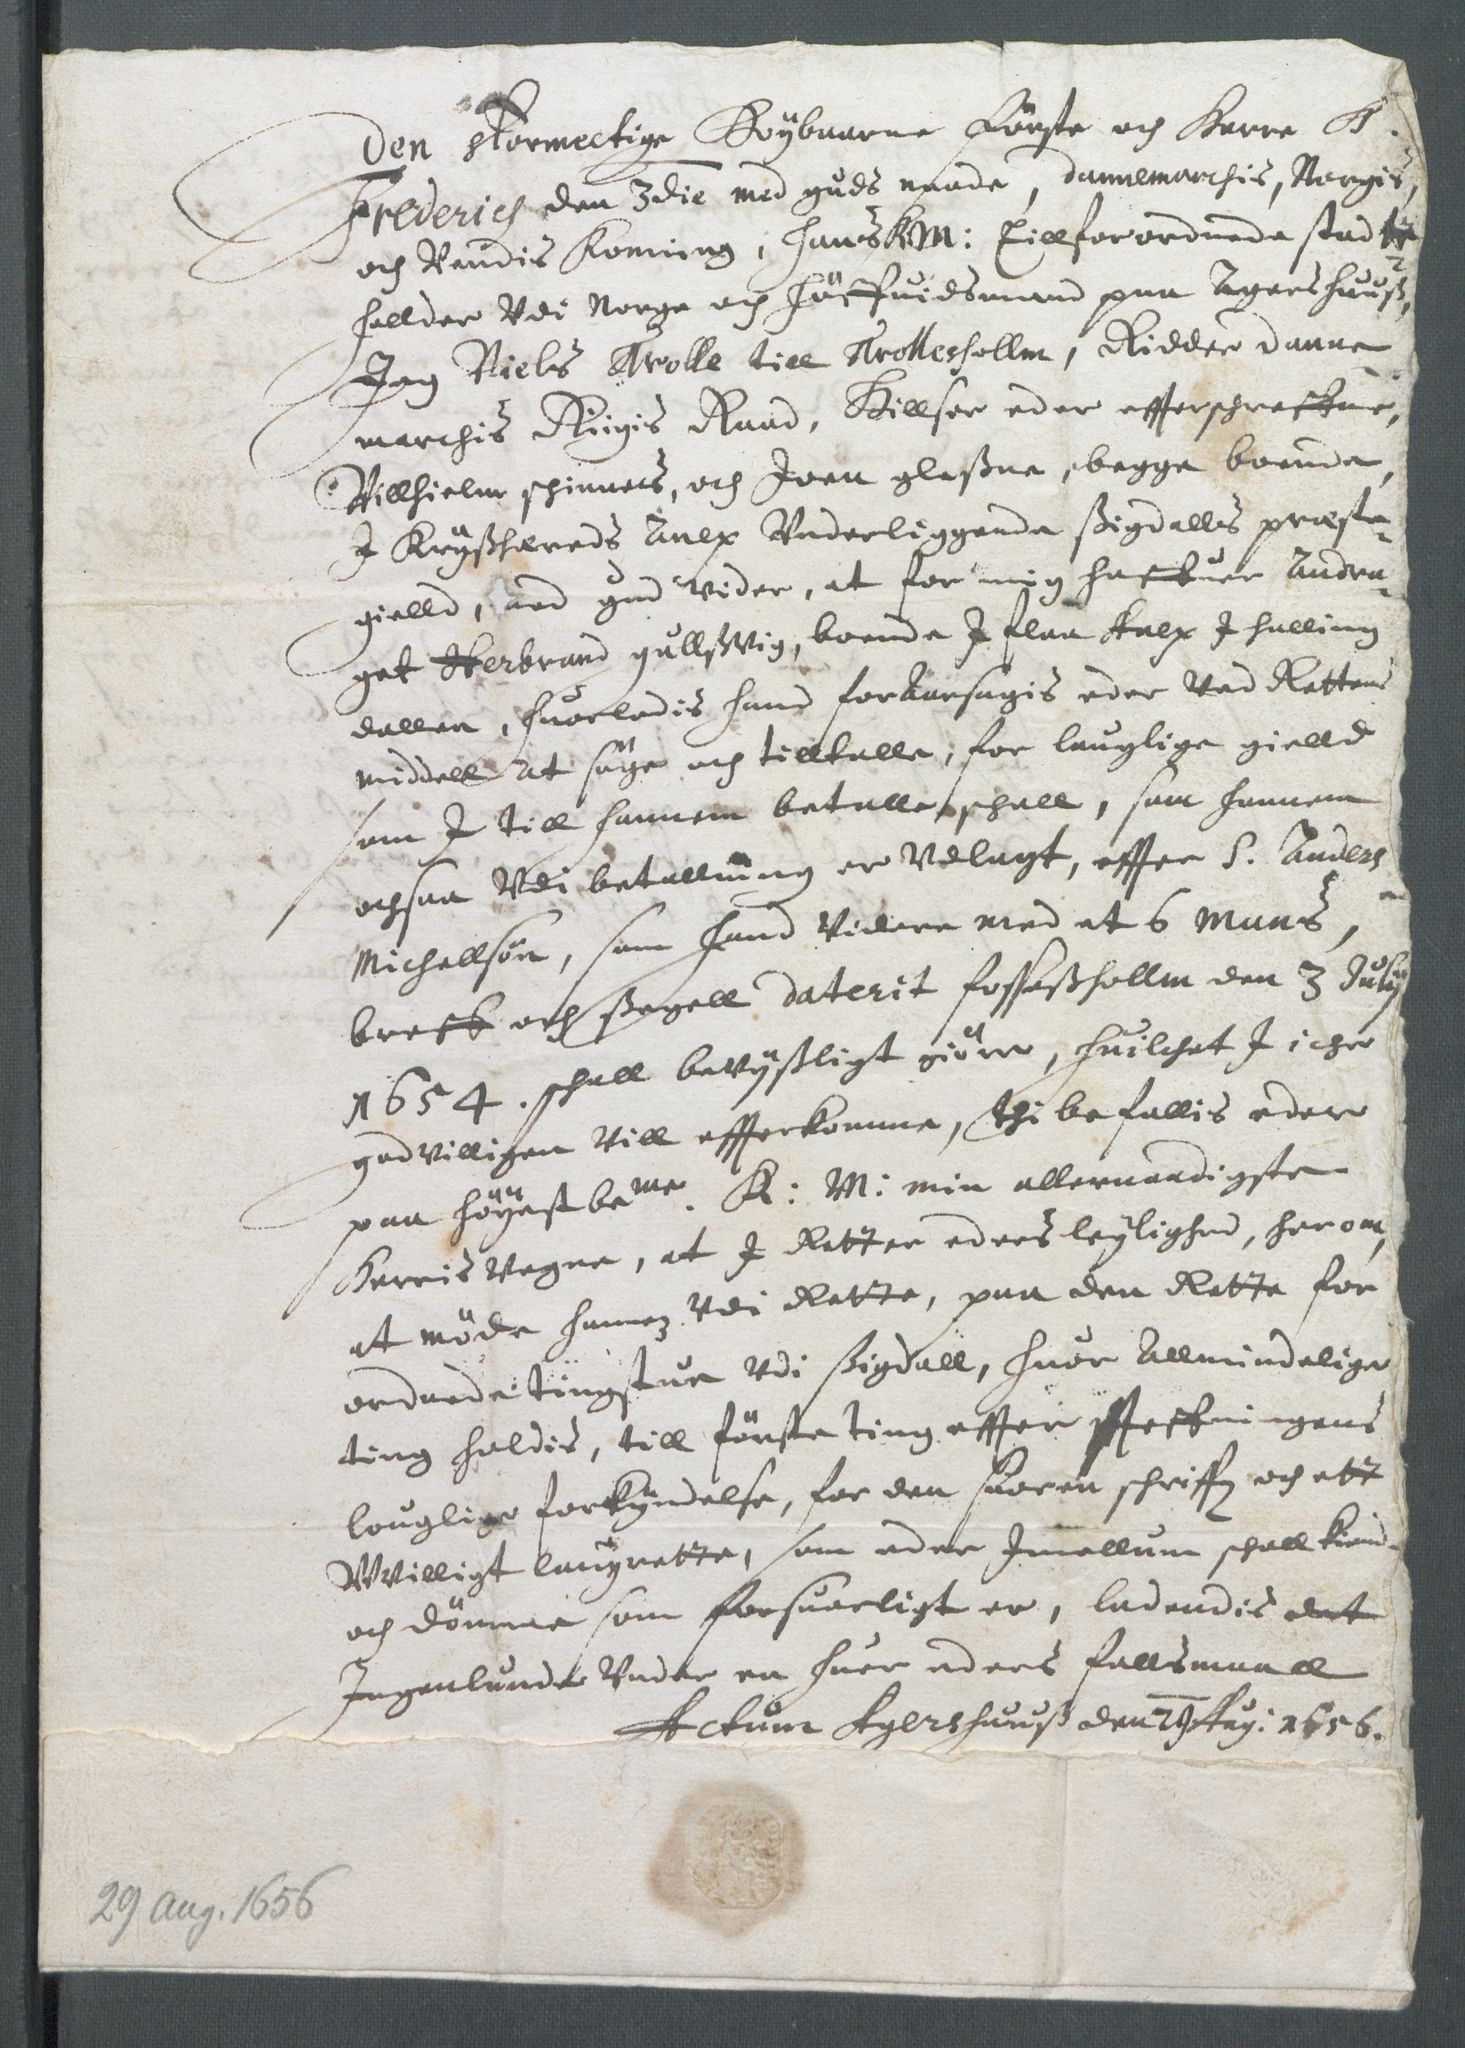 Den stormectige Höybaarne Förste och Herre H.
Frederich den 3die med guds naade, dannemarchis, Norgis,
och Vendis Konning, hans KM: tillforordnede stadt
hollder Vdi Norge och höffuidsmand paa Agershuuß,
Jeg Niels Trolle till Trolleshollm, Ridder danne
marchis Riigis Raad, Hillser eder effterschreffne,
Villhielm spinners, och Joen gloßne, begge boende,
J Krydßhereds Anex Underliggende ßigdalls præste-
gielld, med gud Vider, at for mig haffuer Andra-
get Herbrand gullßvig, boende J flaa Anex J halling
dallen, huorledis hand foraarsagis eder Ved Rettens
middell at söge och tilltalle, for lauglige gielld
som J till hannem betalle schall, som hannem
ochsaa Vdi betallning er Vdlagt, effter S. Anders
Michellsön, som hand Videre med et 6 Mands,
breff och ßegell daterit fosseshollm den 3 July
1654. schall bevyßligt giöre, huilchet J iche
godvilligen Vill effterkomme, thi befallis eder
paa höyest beme. K: M: min allernaadigste
Herris Vegne, at J Retter eders leylighed, her om,
at möde hannem Vdi Rette, paa den Rette for
ordnede tingstue Vdi ßigdall, huor Allmindelige
ting holdis, till förste ting effter steffningens
louglige forkyndelse, for den soren schriffr och ett
Wvilligt laugrette, som eder Jmellum schall kiende
och dömme som forsuarligt er, ladendis det
Jngenlunde Under en huer eders falldsmaall
Actum Agershuuß den 29 Aug: 1656.
29 Aug. 1656